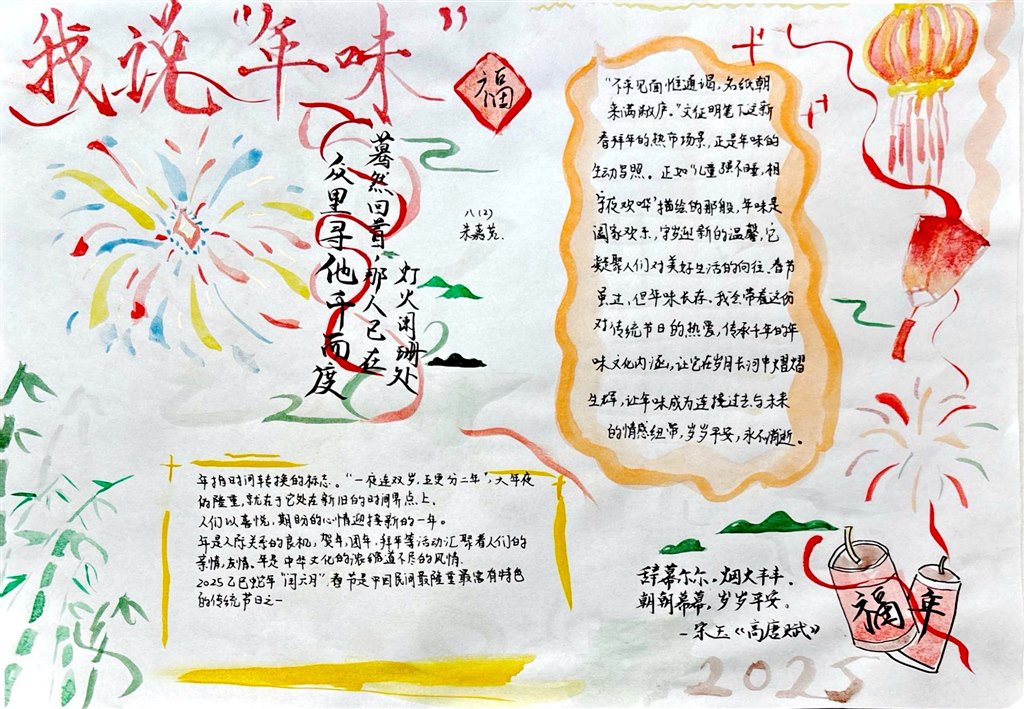 我说“年味”
福
蓦然回首,那人已在
众里寻他千百度
灯火阑珊处
八(2)
朱嘉艺
“不求见面惟通谒,名纸朝
来满敝庐。”文征明笔下这新
春拜年的热市场景,正是年味的
生动写照。正如“儿童强不睡,相
守夜欢哗”描绘的那般,年味是
阖家欢乐,守岁迎新的温馨,它
凝聚人们对美好生活的向往。春节
虽过,但年味长存。我会带着这份
对传统节日的热爱,传承千年的年
味文化内涵,让它在岁月长河中熠熠
生辉,让年味成为连接过去与未来
的情感纽带,岁岁平安,永不消逝。
年指时间转换的标志。“一夜连双岁,五更分二年”,大年夜
的隆重,就在于它处在新旧的时间界点上。
人们以喜悦,期盼的心情迎接新的一年。
年是人际关系的良机,贺年,团年,拜年等活动汇聚着人们的
亲情,友情。年是中华文化的浓缩道不尽的风情。
2025乙巳蛇年“闰六月”春节是中国民间最隆重最富有特色
的传统节日之一
辞暮尔尔。烟火丰丰.
朝朝幕幕,岁岁平安。
-宋玉《高唐赋》
福
年
2025